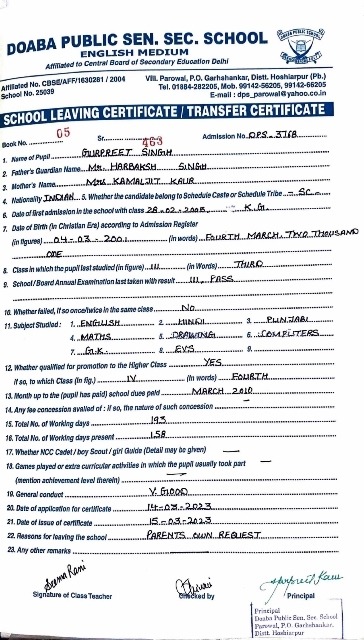 DOABA PUBLIC SEN. SEC. SCHOOL
ENGLISH MEDIUM
Affiliated to Central Board of Secondary Education Delhi
Affiliated No. CBSE/AFF/1630281 / 2004
School No. 25039
Vill. Parowal, P.O. Garhshankar, Distt. Hoshiarpur (Pb.)
Tel. 01884-282205, Mob. 99142-56205, 99142-66205
E-mail : dps_parowal@yahoo.co.in
SCHOOL LEAVING CERTIFICATE / TRANSFER CERTIFICATE
Book No. 05 Sr. 463 Admission No. DPS-3768
1. Name of Pupil GURPREET SINGH
2. Father's Guardian Name MR. HARBAKSH SINGH
3. Mother's Name MRS. KAMALJIT KAUR
4. Nationality INDIAN 5. Whether the candidate belong to Schedule Caste or Schedule Tribe - SC
6. Date of first admission in the school with class 28-02-2005 K.G.
7. Date of Birth (in Christian Era) according to Admission Register
(in figures) 04-03-2001 (in words) FOURTH MARCH TWO THOUSAND
ONE
8. Class in which the pupil last studied (in figure) III (in Words) THIRD
9. School / Board Annual Examination last taken with result III, PASS
10. Whether failed, if so once/twice in the same class NO
11. Subject Studied : 1. ENGLISH 2. HINDI 3. PUNJABI
4. MATHS 5. DRAWING 6. COMPUTERS
7. G.K. 8. EVS 9.
12. Whether qualified for promotion to the Higher Class YES
if so, to which Class (in fig.) IV (In words) FOURTH
13. Month up to the (pupil has paid) school dues paid MARCH 2010
14. Any fee concession availed of : if so, the nature of such concession —
15. Total No. of Working days 193
16. Total No. of Working days present 158
17. Whether NCC Cadet / boy Scout / girl Guide (Detail may be given) —
18. Games played or extra curricular activities in which the pupil usually took part —
(mention achievement level therein) —
19. General conduct V. GOOD
20. Date of application for certificate 14-03-2023
21. Date of issue of certificate 15-03-2023
22. Reasons for leaving the school PARENTS OWN REQUEST
23. Any other remarks
Seema Rani
Signature of Class Teacher
Checked by
Principal
Principal
Doaba Public Sen. Sec. School
Parowal, P.O. Garhshankar,
Distt. Hoshiarpur